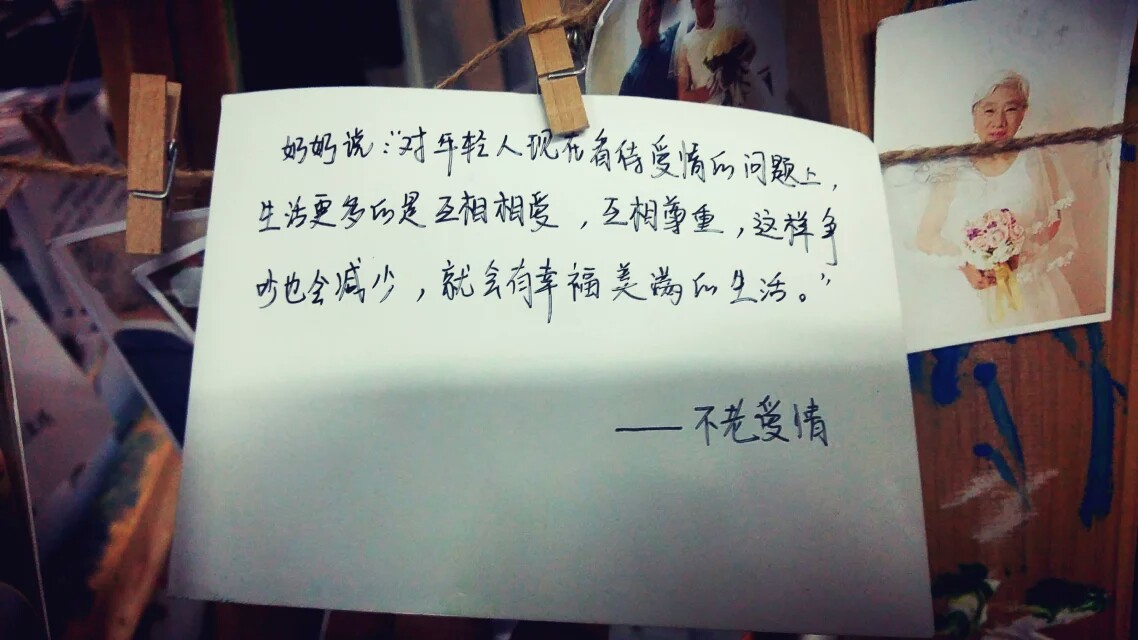 奶奶说：“对年轻人现在看待爱情的问题上，
生活更多的是互相相爱，互相尊重，这样争
吵也会减少，就会有幸福美满的生活。”
——不老爱情